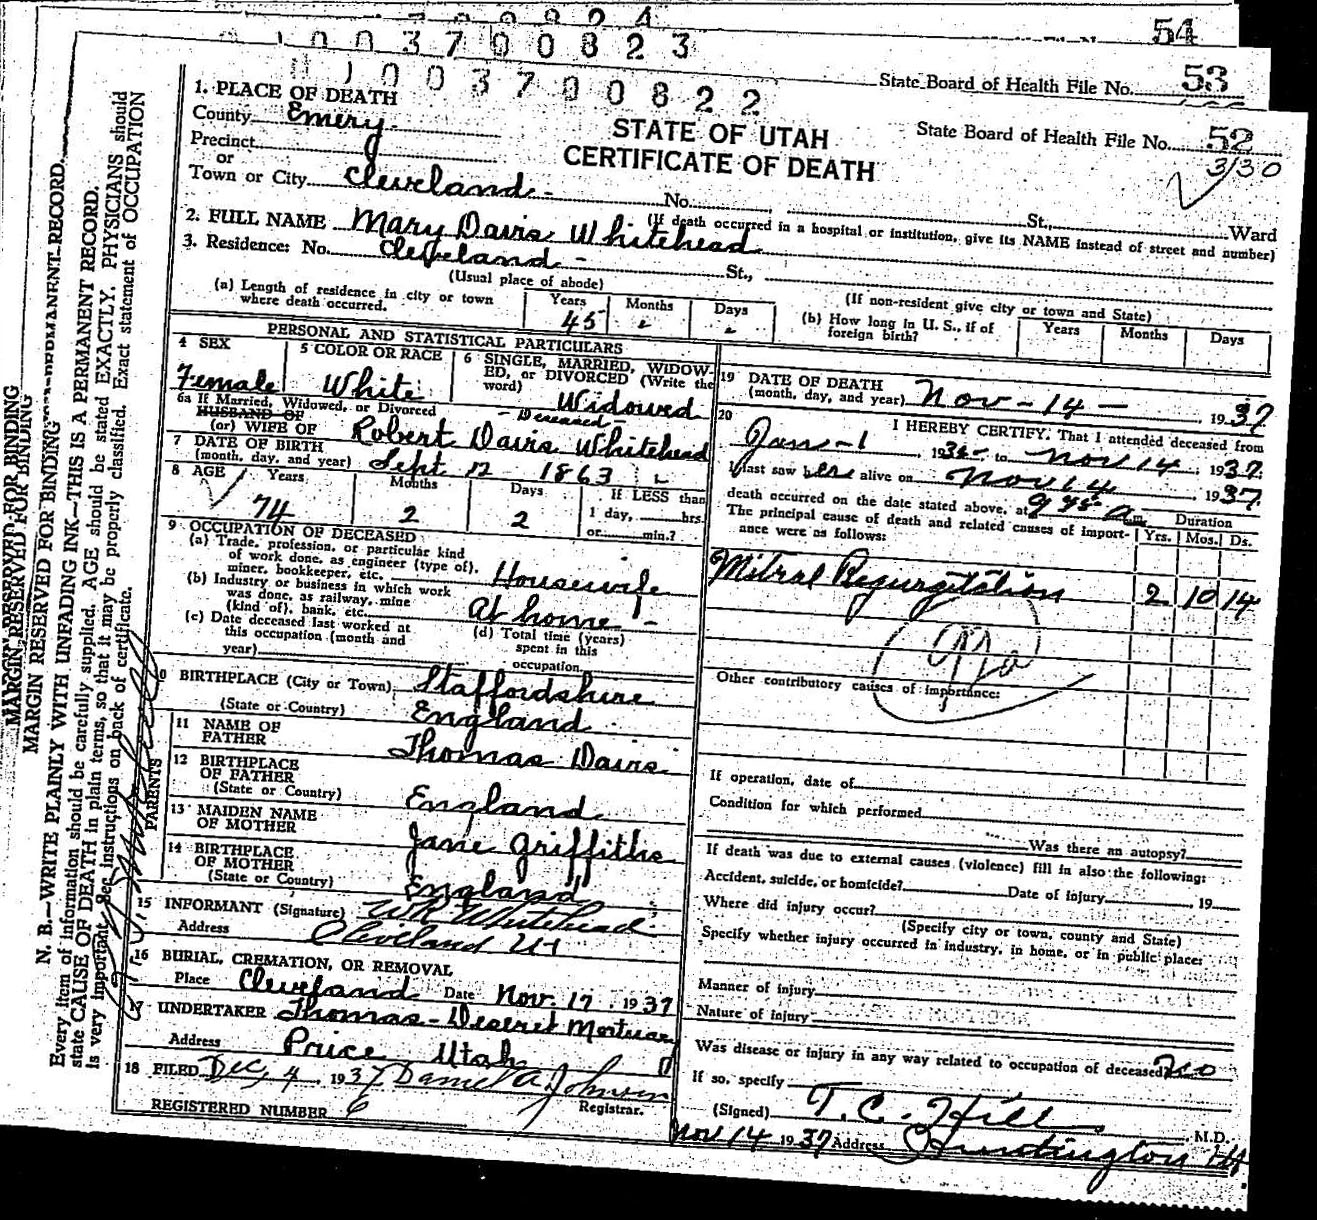 54
1 0 0 3 7 0 0 8 2 3
State Board of Health File No. 53
1 0 0 3 7 0 0 8 2 2
State Board of Health File No. 52
3/30
STATE OF UTAH
CERTIFICATE OF DEATH
1. PLACE OF DEATH
County Emery
Precinct
or
Town or City Cleveland - No. St., Ward
(If death occurred in a hospital or institution, give its NAME instead of street and number)
2. FULL NAME Mary Davis Whitehead
3. Residence: No. Cleveland - St.,
(Usual place of abode)
(If non-resident give city or town and State)
(a) Length of residence in city or town where death occurred. Years 45 Months - Days -
(b) How long in U. S., if of foreign birth? Years Months Days
PERSONAL AND STATISTICAL PARTICULARS
4 SEX Female
5 COLOR OR RACE White
6 SINGLE, MARRIED, WIDOWED, or DIVORCED (Write the word) Widowed
6a If Married, Widowed, or Divorced - Deceased -
HUSBAND OF
(or) WIFE OF Robert Davis Whitehead
7 DATE OF BIRTH
(month, day, and year) Sept 12 - 1863
8 AGE Years 74 Months 2 Days 2 If LESS than 1 day, hrs. or min.?
9 OCCUPATION OF DECEASED
(a) Trade, profession, or particular kind of work done, as engineer (type of), miner, bookkeeper, etc. Housewife
(b) Industry or business in which work was done, as railway, mine (kind of), bank, etc. At home -
(c) Date deceased last worked at this occupation (month and year)
(d) Total time (years) spent in this occupation
BIRTHPLACE (City or Town) Staffordshire
(State or Country) England
PARENTS
11 NAME OF FATHER Thomas Davis
12 BIRTHPLACE OF FATHER
(State or Country) England
13 MAIDEN NAME OF MOTHER Jane Griffiths
14 BIRTHPLACE OF MOTHER
(State or Country) England
15 INFORMANT (Signature) W R Whitehead
Address Cleveland Ut
16 BURIAL, CREMATION, OR REMOVAL
Place Cleveland Date Nov. 17, 1937
17 UNDERTAKER Thomas - Deseret Mortuary
Address Price Utah
18 FILED Dec, 4, 1937 Daniel A Johnson
Registrar.
REGISTERED NUMBER 6
19 DATE OF DEATH
(month, day, and year) Nov - 14 - 1937
20 I HEREBY CERTIFY, That I attended deceased from
Jan - 1, 1935 to Nov 14, 1937.
I last saw her alive on Nov 14, 1937
death occurred on the date stated above, at 9 45 A m.
The principal cause of death and related causes of importance were as follows: Duration Yrs. Mos. Ds.
Mitral Regurgitation 2 10 14
Other contributory causes of importance:
If operation, date of
Condition for which performed
Was there an autopsy?
If death was due to external causes (violence) fill in also the following:
Accident, suicide, or homicide? Date of injury , 19
Where did injury occur?
(Specify city or town, county and State)
Specify whether injury occurred in industry, in home, or in public place:
Manner of injury
Nature of injury
Was disease or injury in any way related to occupation of deceased? No
If so, specify
(Signed) T. C. Hill, M.D.
Nov 14 1937 Address Huntington Ut.
MARGIN RESERVED FOR BINDING
MARGIN RESERVED FOR BINDING
N. B.—WRITE PLAINLY WITH UNFADING INK—THIS IS A PERMANENT RECORD.
Every item of information should be carefully supplied. AGE should be stated EXACTLY. PHYSICIANS should
state CAUSE OF DEATH in plain terms, so that it may be properly classified. Exact statement of OCCUPATION
is very important. See instructions on back of certificate.